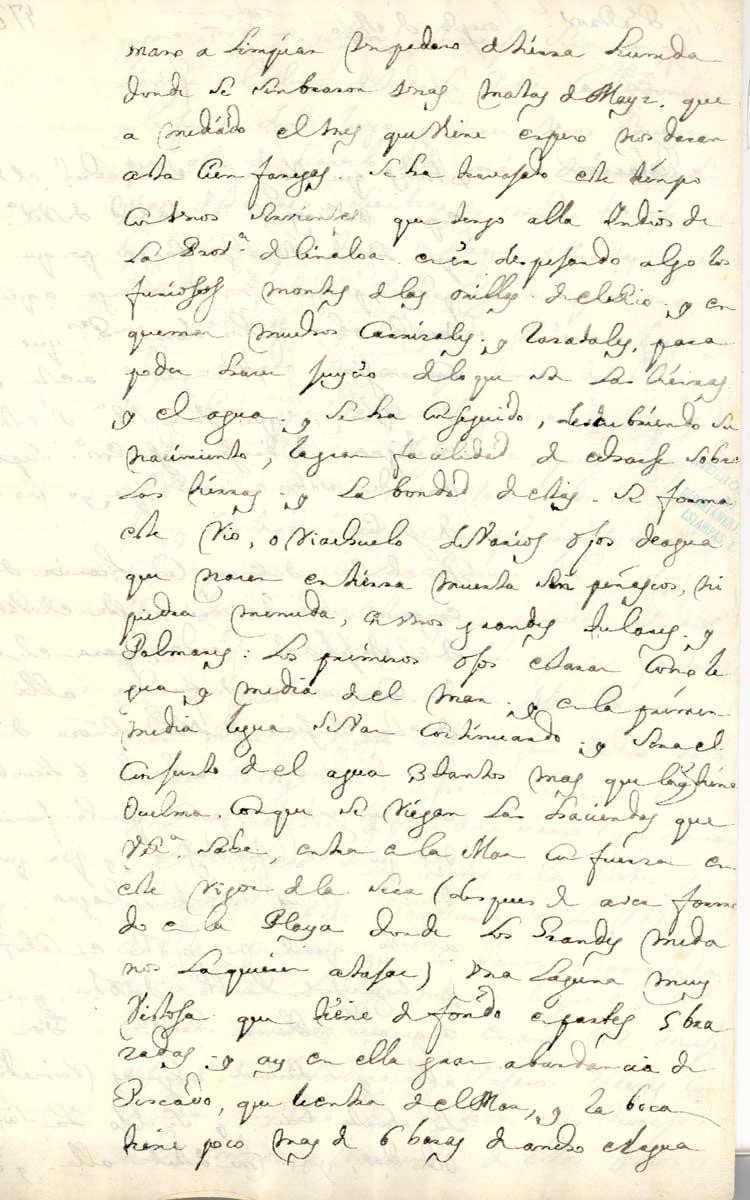 mano a limpiar un pedazo de tierra humeda
donde se sembraron unas matas de Mayz. que
a mediado el mes que viene espero nos daran
asta Cien fanegas. Se ha travajado este tiempo
con unos sirvientes que tengo alla Indios de
La Prov.ª de Sinaloa en ir despejando algo los
furiosos montes de las orillas de el Rio. y en
quemar muchos Carrizales. y Zarzales, para
poder hacer juycio de lo que son Las tierras
y el agua. y se ha conseguido, descubriendo su
nacimiento, la gran facilidad de echarse sobre
Las tierras. y La bondad de estas. Se forma
este Rio, o Riachuelo de Varios ojos de agua
que nacen en tierra muerta sin peñascos, ni
piedra menuda, en unos grandes tulares. y
Palmares: Los primeros ojos estaran como le
gua y media de el mar. y en la primera
media legua se van continuando. y sera el
Conjunto de el agua 3 tantos mas que la q tiene
Ducelma. Con que se riegan Las haciendas que
V.R.ª sabe, entra a la Mar con fuerza en
este rigor de la seca (despues de aver forma
do a la Playa donde Los Grandes meda
nos La quieren atajar) una Laguna muy
Vistosa que tiene de fondo en partes 5 bra
zadas. y ay en ella gran abundancia de
Pescado, que le entra de el Mar, y la boca
tiene poco mas de 6 baras de ancho el agua